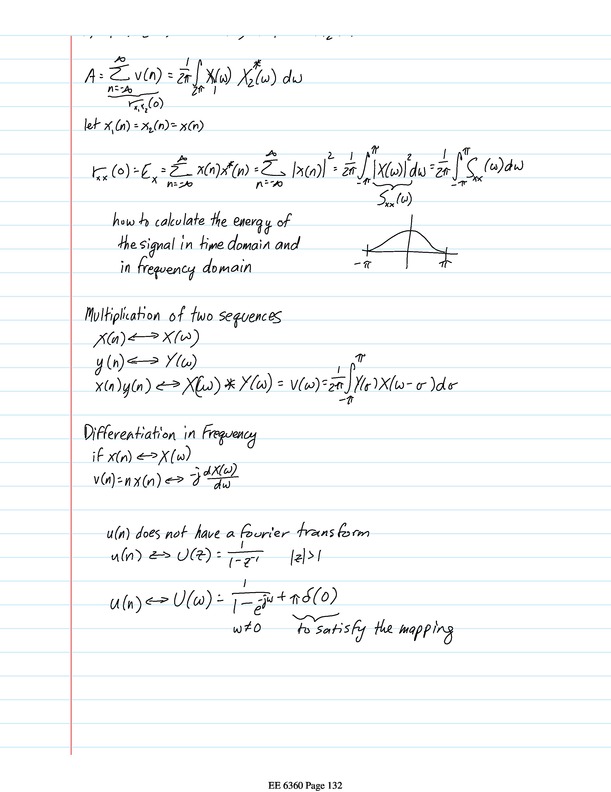 A = ∞ Σ n=-∞ v(n) = 1/2π ∫ 2π X1(ω) X2*(ω) dω
rx1x2(0)
let x1(n) = x2(n) = x(n)
rxx(0) = Ex = ∞ Σ n=-∞ x(n)x*(n) = ∞ Σ n=-∞ |x(n)|² = 1/2π ∫ -π π |X(ω)|² dω = 1/2π ∫ -π π Sxx(ω)dω
Sxx(ω)
how to calculate the energy of
the signal in time domain and
in frequency domain
-π π
Multiplication of two sequences
x(n) ⟷ X(ω)
y(n) ⟷ Y(ω)
x(n)y(n) ⟷ X(ω) * Y(ω) = V(ω) = 1/2π ∫ -π π Y(σ) X(ω-σ)dσ
Differentiation in Frequency
if x(n) ⟷ X(ω)
v(n) = n x(n) ⟷ -j dX(ω)/dω
u(n) does not have a fourier transform
u(n) ⟷ U(z) = 1/1-z⁻¹ |z|>1
u(n) ⟷ U(ω) = 1/1-e^-jω + πδ(0)
ω≠0 to satisfy the mapping
EE 6360 Page 132